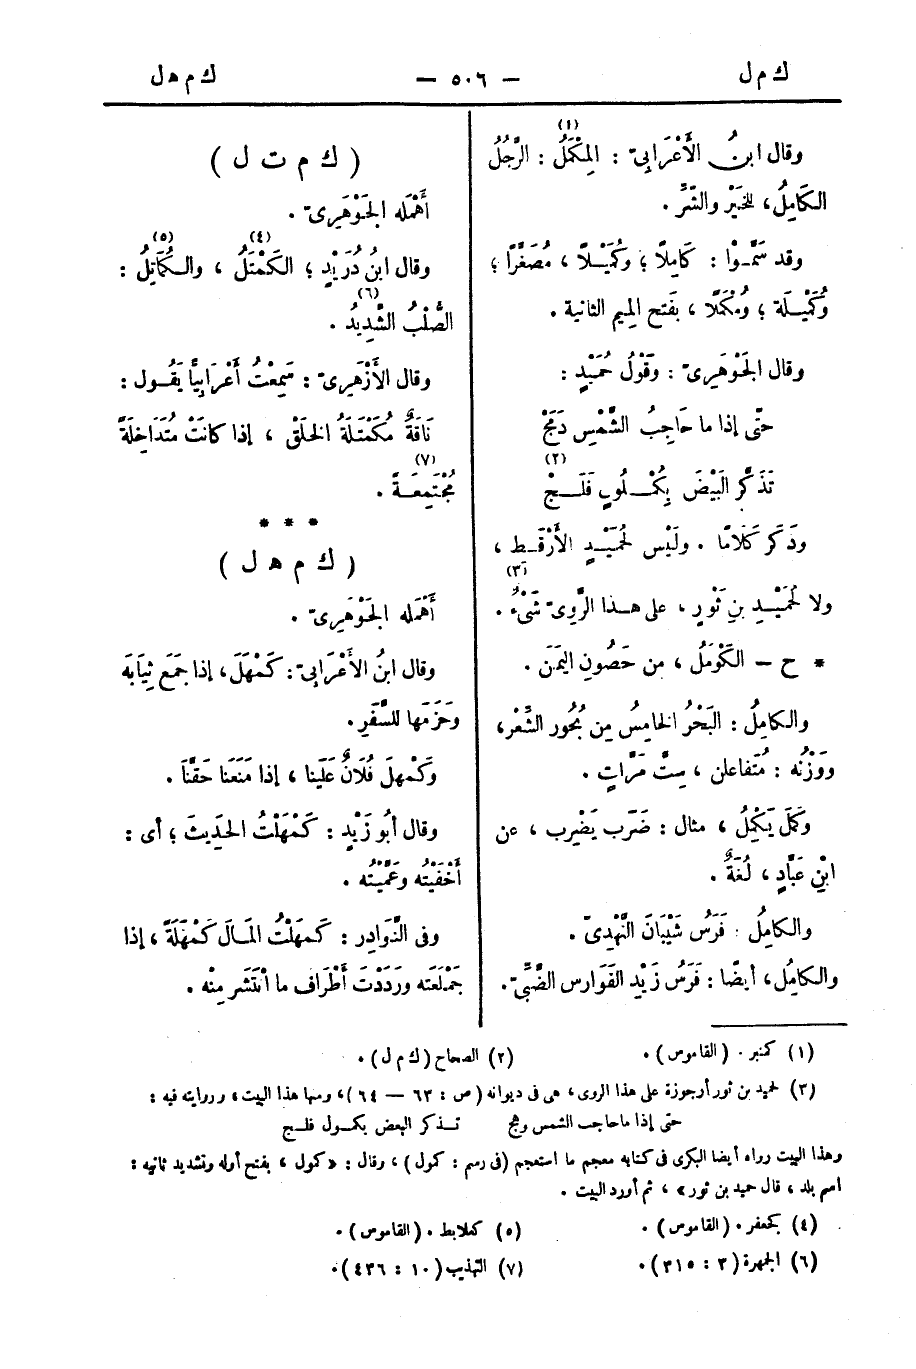 ك م ل — ٥٠٦ — ك م هـ ل
(١)
وقال ابنُ الأَعْرَابِىّ : المِكْمَلُ : الرَّجُلُ
الكَامِلُ، للخَيْر والشَّرِّ .
وقد سَمَّوْا : كَامِلًا ؛ وكُمَيْلًا ، مُصَغَّرًا ؛
وكُمَيْلَة ؛ ومُكْمَلًا ، بفَتح المِيم الثانية .
وقال الجَوْهَرِىّ : وقَوْلُ حُمَيْدٍ :
حتّى إذا ما حَاجِبُ الشَّمْسِ دَمَجْ
(٢)
تَذَكَّرَ البَيْضَ بِكُمْلُولٍ فَلَجْ
وذَكَر كَلَامًا . ولَيْس لحُمَيْدٍ الأَرْقَط ،
(٣)
ولا لحُمَيْدِ بنِ ثَوْرٍ ، على هذا الرَّوِىّ شَىْءٌ .
* ح — الكَوْمَلُ ، من حُصُونِ اليَمَن .
والكامِلُ : البَحْرُ الخامِسُ مِن بُحُور الشِّعْر،
ووَزْنُه : مُتَفاعلن ، سِتَّ مَرَّاتٍ .
وكَمَلَ يَكْمِلُ ، مثال : ضَرَب يَضْرِب ، عن
ابْنِ عَبَّادٍ ، لُغَةٌ .
والكامِلُ : فَرَسُ شَيْبَانَ النَّهْدِىّ .
والكامِلُ، أيضًا : فَرَسُ زَيْدِ الفَوَارِس الضَّبِّىّ .
( ك م ت ل )
أَهْمَله الجَوْهَرِىّ .
(٤) (٥)
وقال ابنُ دُرَيْدٍ ؛ الكَمْتَلُ ، والكُمَاتِلُ :
(٦)
الصُّلْبُ الشَّدِيدُ .
وقال الأَزْهَرِىّ : سَمِعْتُ أَعْرَابِيًّا يَقُول :
نَاقَةٌ مُكَمْتَلَةُ الخَلْقِ ، إذا كانَتْ مُتَدَاخِلَةً
(٧)
مُجْتَمِعَةً .
* * *
( ك م هـ ل )
أَهْمَله الجَوْهَرِىّ .
وقال ابنُ الأَعْرَابِىّ : كَمْهَلَ، إذا جَمَع ثِيَابَه
وحَزَمَها للسَّفَرِ .
وكَمْهلَ فُلَانٌ عَلَينا ، إذا مَنَعَنا حَقَّنَا .
وقال أبُو زَيْدٍ : كَمْهَلْتُ الحَدِيثَ ؛ أى :
أَخْفَيْتُه وعَمَّيْتُه .
وفى النَّوَادِر : كَمهَلْتُ المَالَ كَمْهَلَةً ، إذا
جَمَلْعَته ورَدَدْتَ أَطْرَاف ما انْتَشَر مِنْه .
(١) كمنبر . (القاموس) . (٢) الصحاح (ك م ل) .
(٣) لحميد بن ثور أرجوزة على هذا الروى ، هى فى ديوانه (ص : ٦٣ — ٦٤) ، ومنها هذا البيت ، وروايته فيه :
حتى إذا ما حاجب الشمس وهج تــذكر البعض بكمول فلــج
وهذا البيت رواه أيضا البكرى فى كتابه معجم ما استعجم (فى رسم : كمول) ، وقال : «كمول ، بفتح أوله وتشديد ثانيه :
اسم بلد ، قال حميد بن ثور» ، ثم أورد البيت .
(٤) كجعفر . (القاموس) . (٥) كعلابط . (القاموس) .
(٦) الجمهرة (٣ : ٣١٥) . (٧) التهذيب (١٠ : ٤٣٦) .